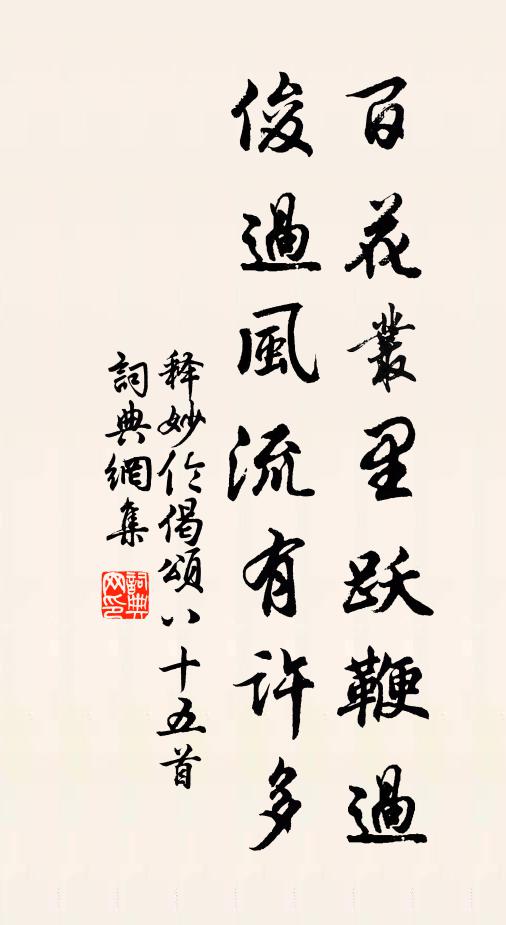 百花叢里跃鞭過
俊過風流有許多
释妙伦偈頌八十五首
詞典網集
詞典网印